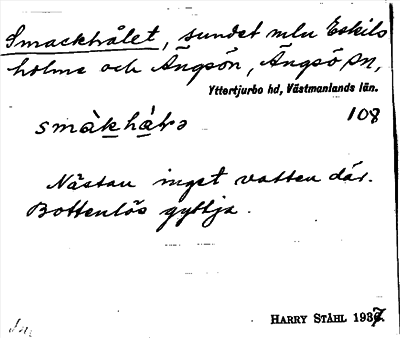 Smackhålet, sundet mln Eskils
holme och Ängsön, Ängsö sn,
Yttertjurbo hd, Västmanlands län.
108
Nästan inget vatten där.
Bottenlös gyttja.
HARRY STÅHL 1937.